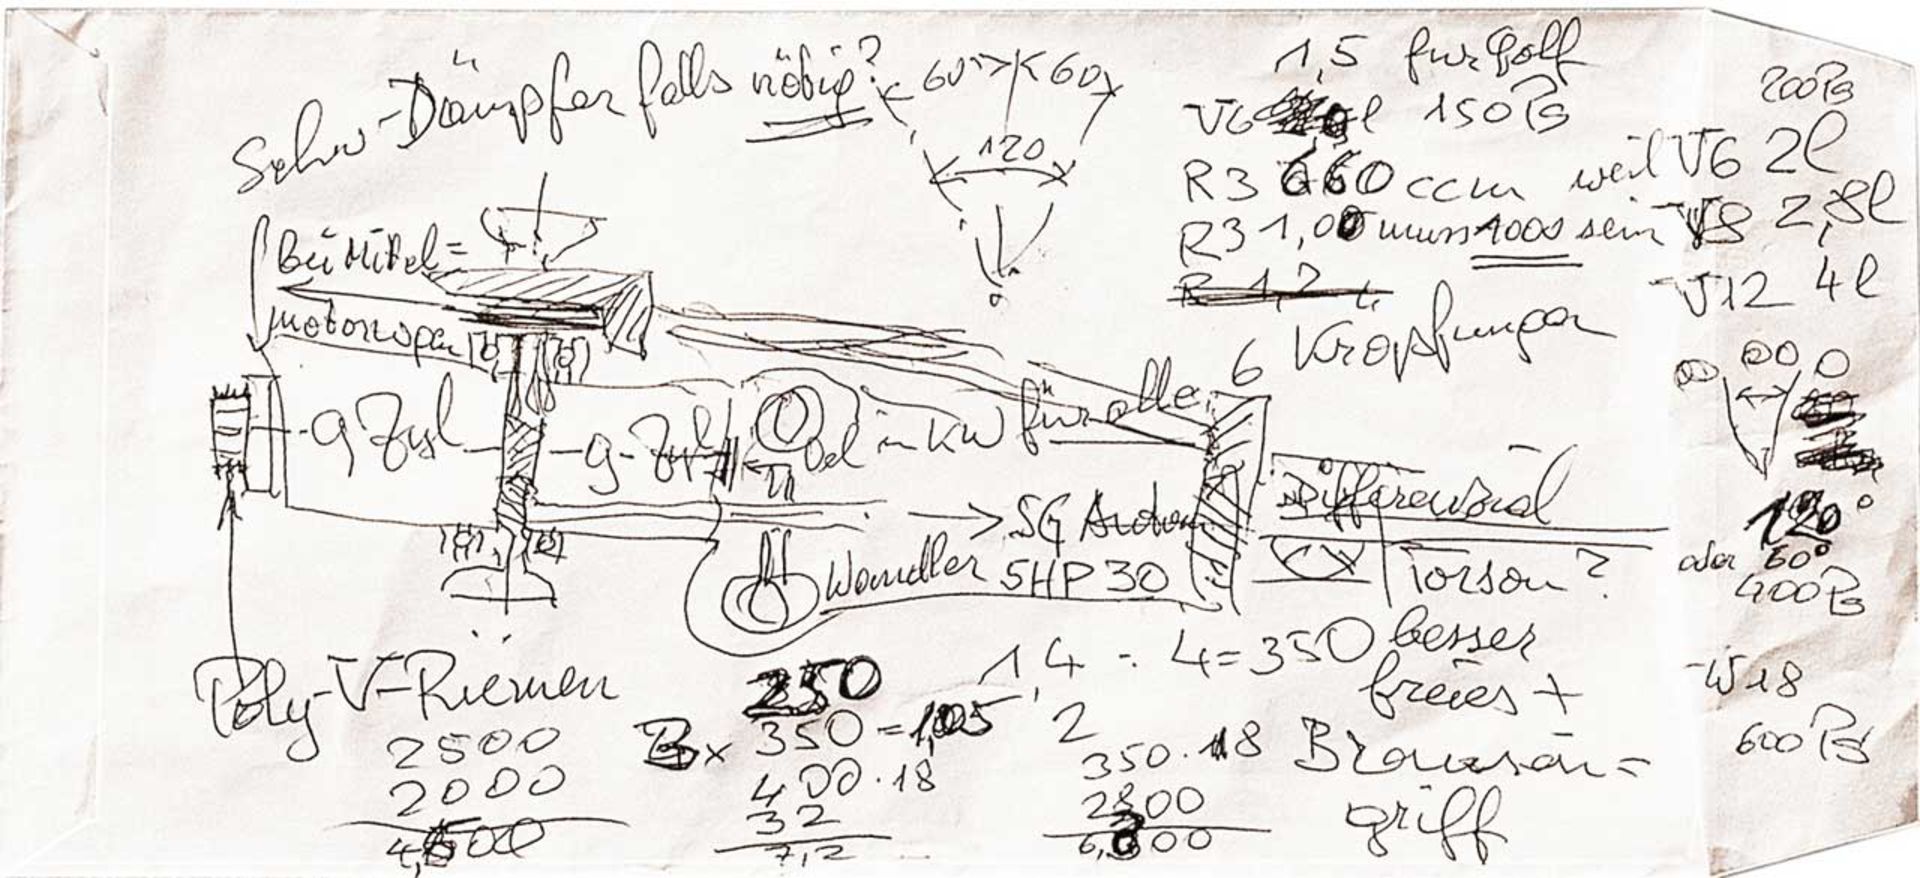 Schw-Dämpfer falls nötig?
60° 60
120
1,5 für Golf
V6 l 150 PS
R3 660 ccm weil V6 2l
200 PS
R3 1,00 muss 1000 sein V8 2,8l
R 1,2
V12 4l
6 Kröpfungen
bei Mittel=
motorwagen
9 Zyl
9-Zyl
Öl in KW für alle
Differenzial
5G
Wandler 5HP30
Torson?
120°
oder 60°
400 PS
Poly-V-Riemen
2500
2000
4,500
250
350 = 1,05
400 · 18
32
7,2
1,4 : 4 = 350 besser
2
350 · 18
2800
6,300
freies +
griff
W18
600 PS